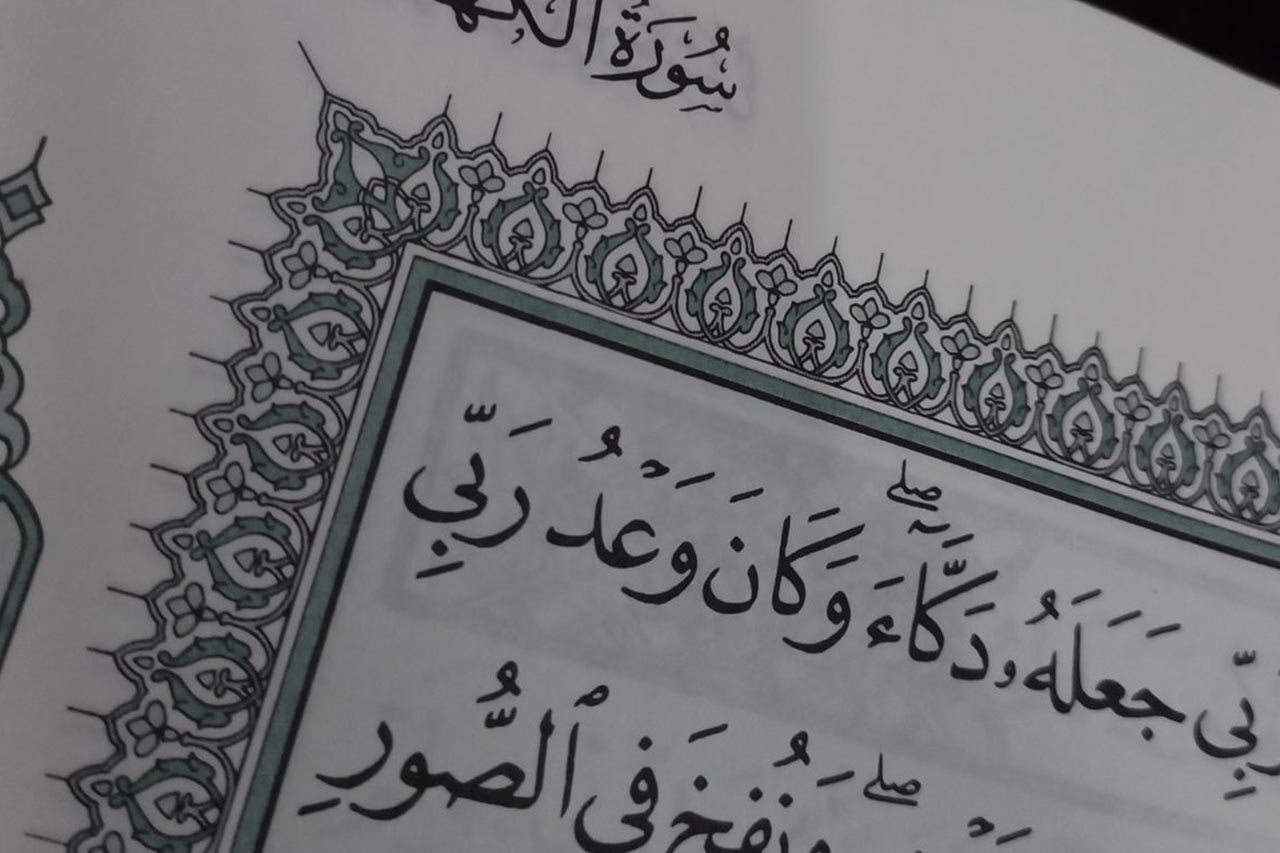 سُورَةُ
جَعَلَهُۥ دَكَّآءَۖ وَكَانَ وَعْدُ رَبِّي
وَنُفِخَ فِي ٱلصُّورِ